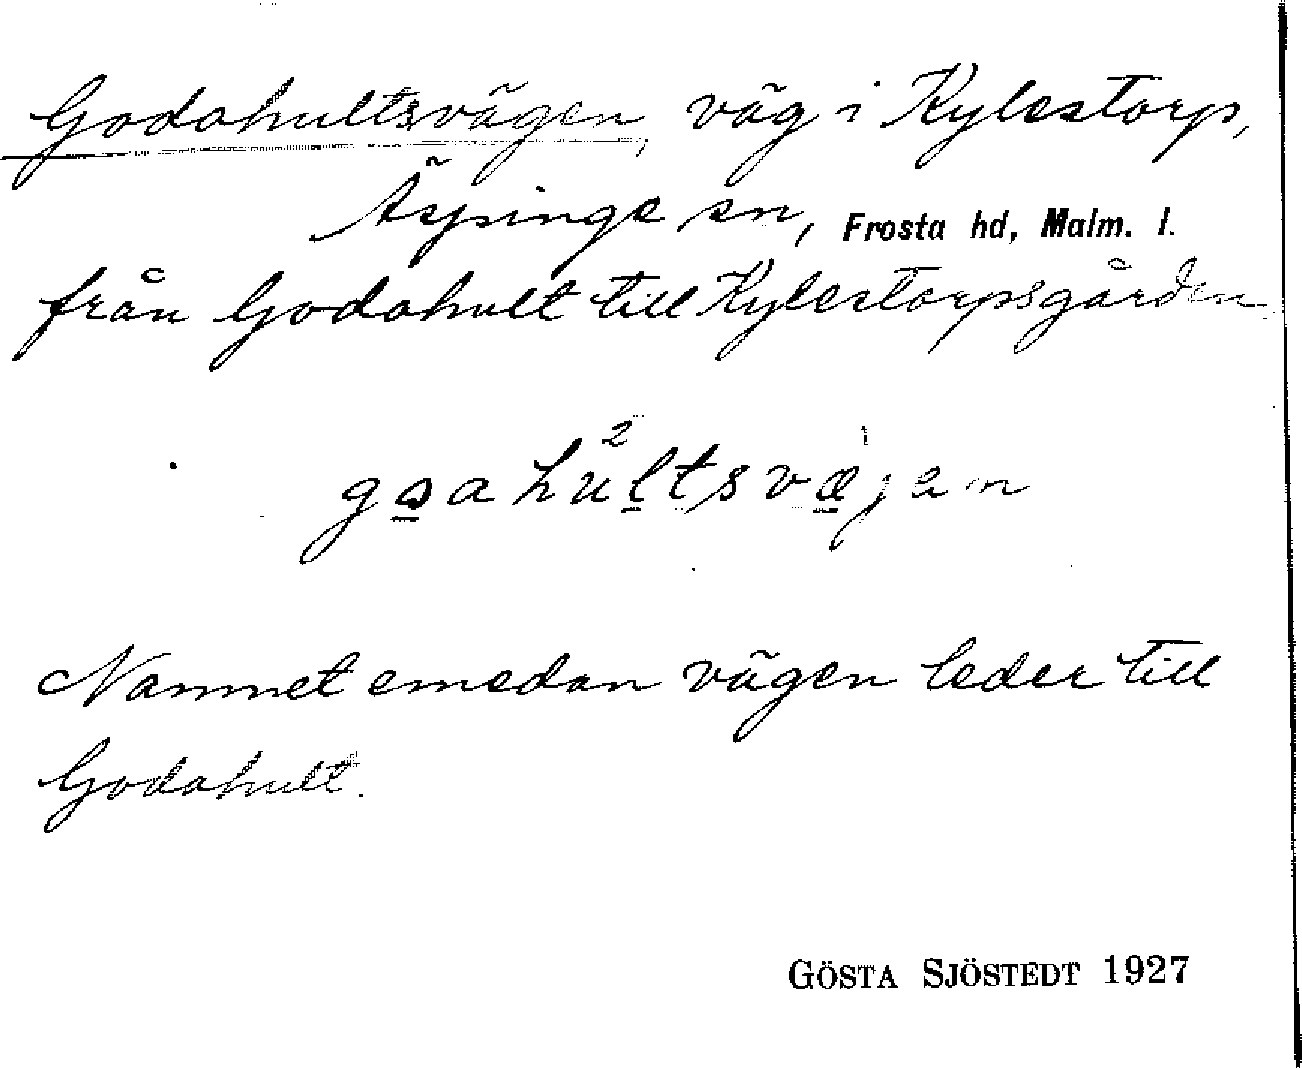 Godahultsvägen, väg i Kylestorp,
Äspinge sn, Frosta hd, Malm. l.
från Godahult till Kylestorpsgården
Namnet emedan vägen leder till
Godahult.
GÖSTA SJÖSTEDT 1927